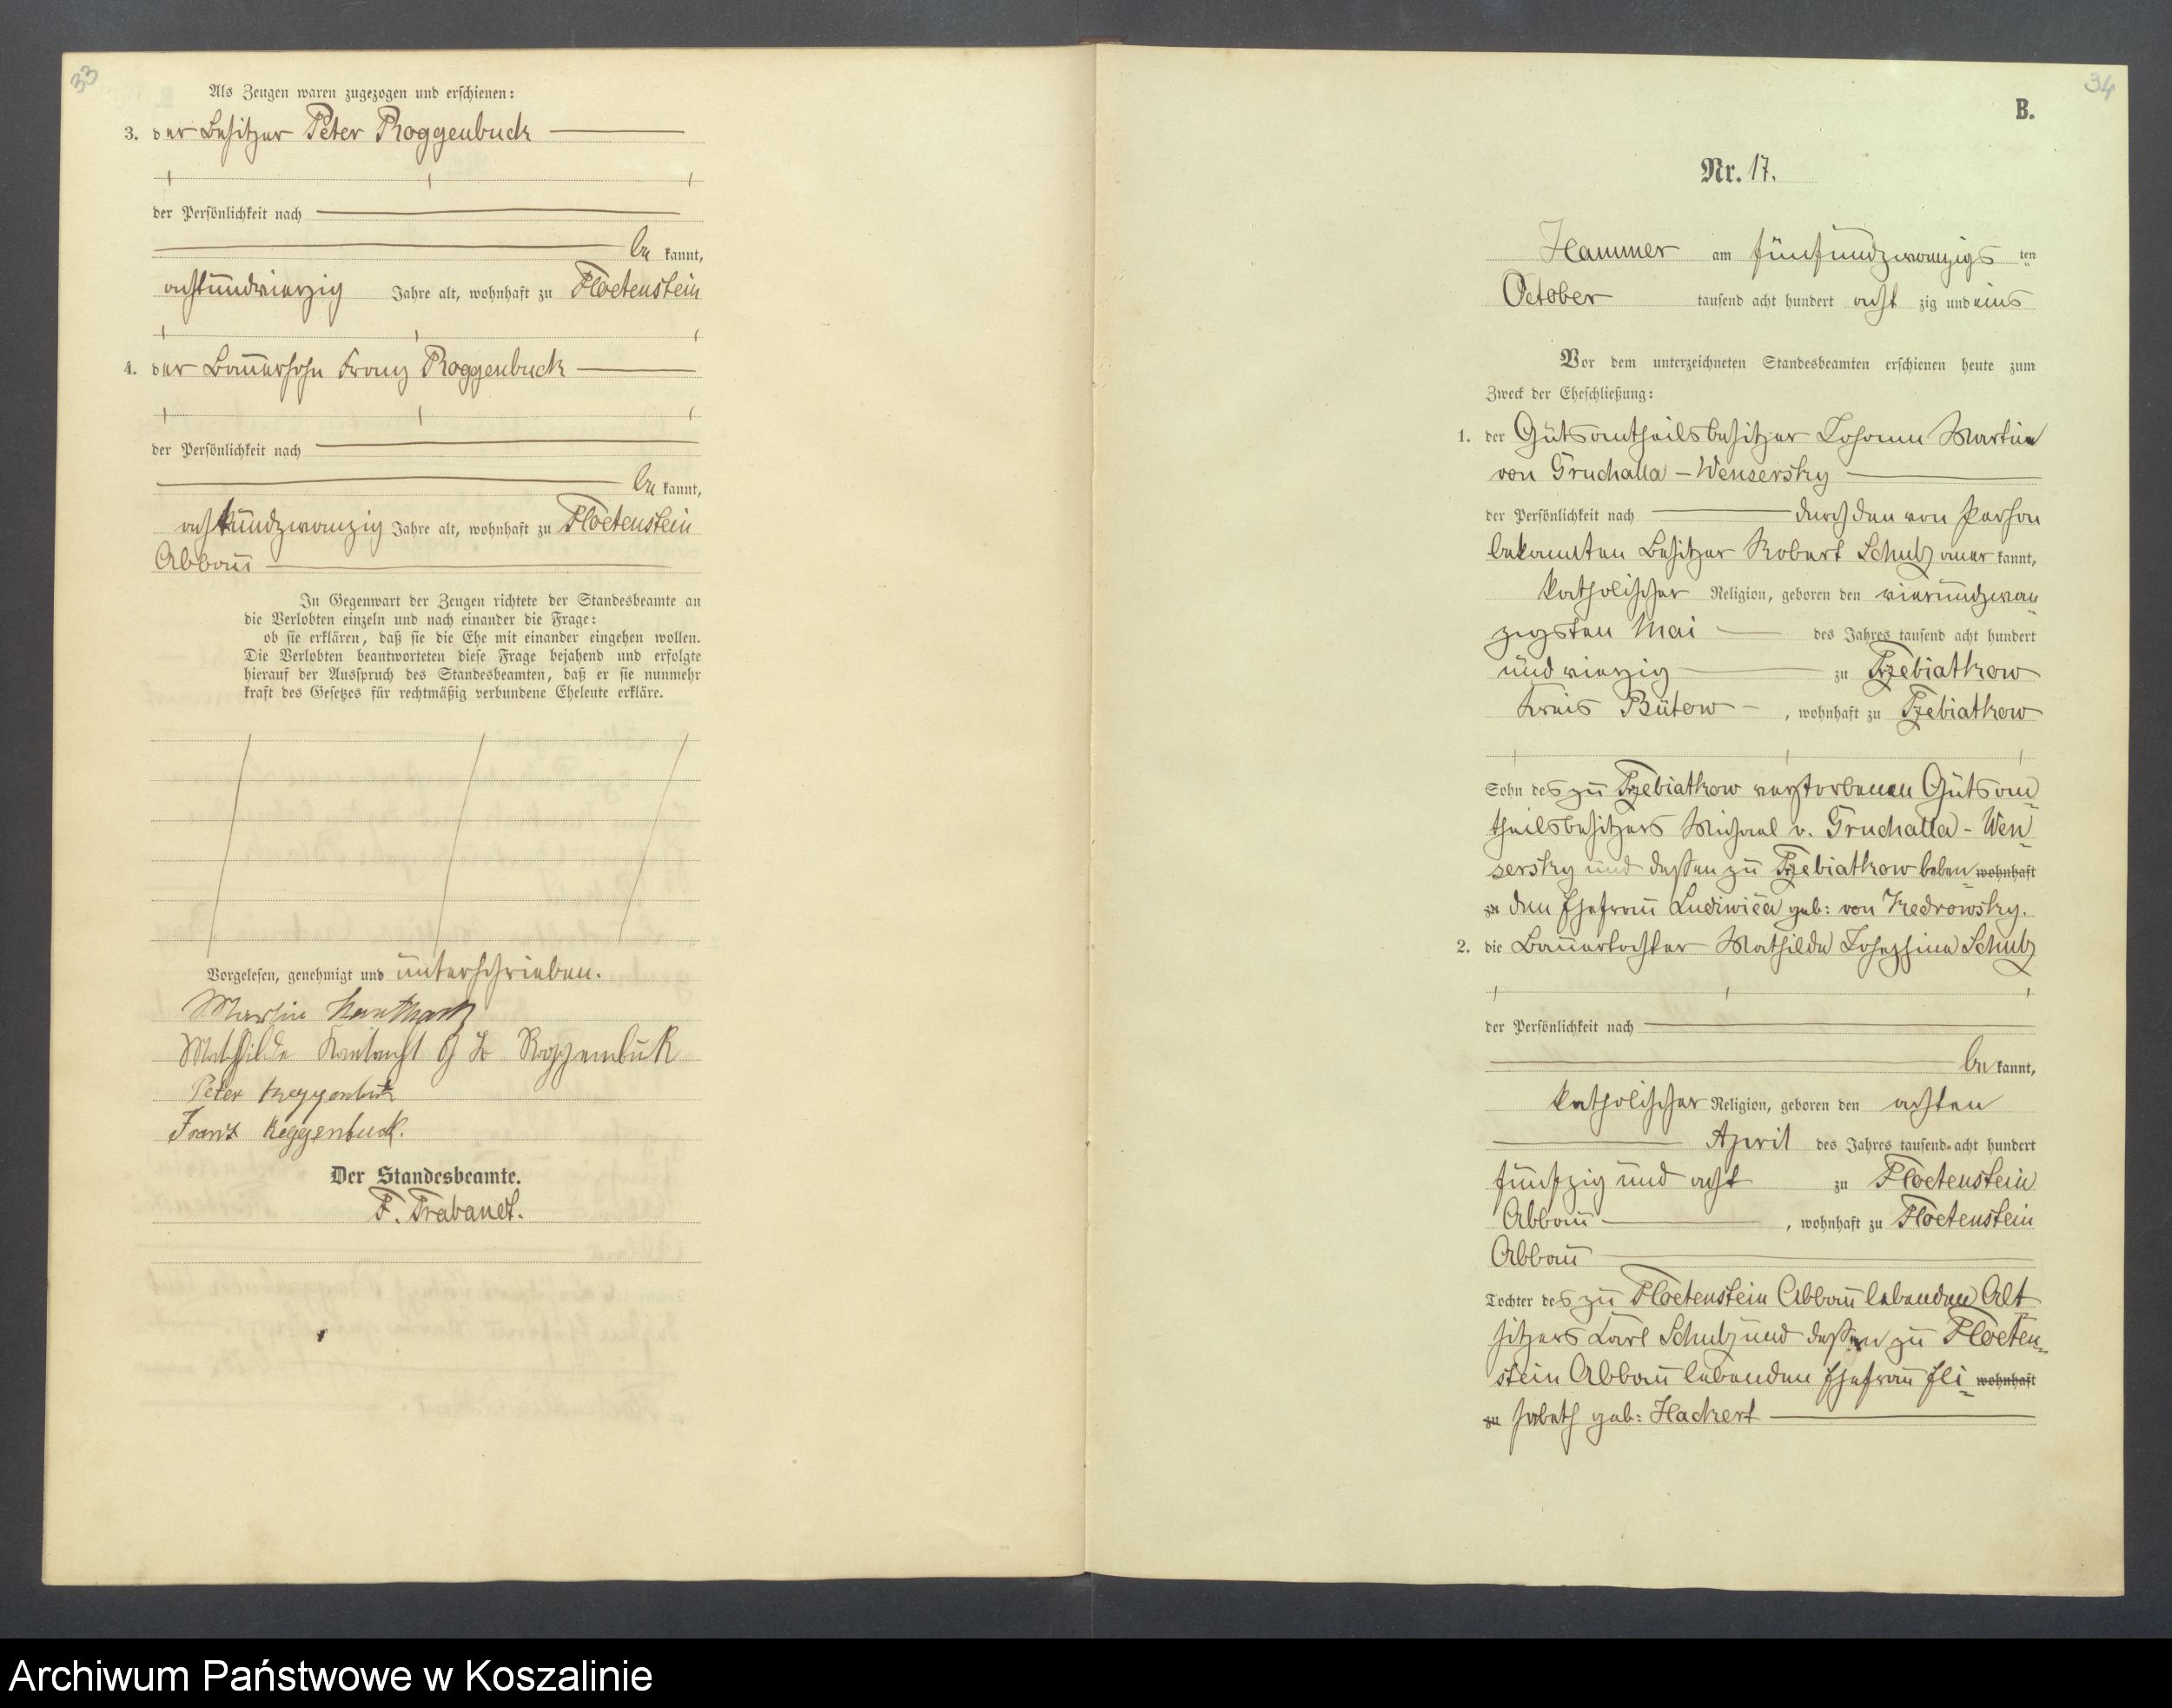 33
Als Zeugen waren zugezogen und erschienen:
3. der Besitzer Peter Roggenbuck
der Persönlichkeit nach
be kannt,
achtundvierzig Jahre alt, wohnhaft zu Floetenstein
4. der Bauersohn Franz Roggenbuck
der Persönlichkeit nach
be kannt,
achtundzwanzig Jahre alt, wohnhaft zu Floetenstein
Abbau
In Gegenwart der Zeugen richtete der Standesbeamte an
die Verlobten einzeln und nach einander die Frage:
ob sie erklären, daß sie die Ehe mit einander eingehen wollen.
Die Verlobten beantworteten diese Frage bejahend und erfolgte
hierauf der Ausspruch des Standesbeamten, daß er sie nunmehr
kraft des Gesetzes für rechtmäßig verbundene Eheleute erkläre.
Vorgelesen, genehmigt und unterschrieben.
Martin
Mathilde
Peter Roggenbuk
Franz Roggenbuck.
Der Standesbeamte.
F. Trabandt.
34
B.
Nr. 17.
Hammer am fünfundzwanzigs ten
October tausend acht hundert acht zig und eins
Vor dem unterzeichneten Standesbeamten erschienen heute zum
Zweck der Eheschließung:
1. der Gutsantheilsbesitzer Johann Martin
von Gruchalla - Wensersky
der Persönlichkeit nach durch den von Person
bekannten Besitzer Robert Schulz aner kannt,
katholischer Religion, geboren den vierundzwan
zigsten Mai des Jahres tausend acht hundert
und vierzig zu Trzebiatkow
Kreis Bütow, wohnhaft zu Trzebiatkow
Sohn des zu Trzebiatkow verstorbenen Gutsan
theilsbesitzers Michael v. Gruchalla - Wen
sersky und dessen zu Trzebiatkow leben wohnhaft
zu den Ehefrau Ludiwica geb: von Kedrowsky.
2. die Bauertochter Mathilde Josephine Schulz
der Persönlichkeit nach
be kannt,
katholischer Religion, geboren den achten
April des Jahres tausend acht hundert
fünfzig und acht zu Floetenstein
Abbau, wohnhaft zu Floetenstein
Abbau
Tochter des zu Floetenstein Abbau lebenden Alt
sitzers Karl Schulz und dessen zu Floeten
stein Abbau lebenden Ehefrau Eli wohnhaft
zu sabeth geb: Hackert
Archiwum Państwowe w Koszalinie